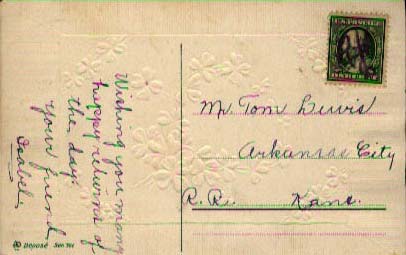 Wishing you many
happy returns of
the day.
Your friend
Isabel.
Mr. Tom Lewis
Arkansas City
R. R. Kans.
Depose Ser. 701